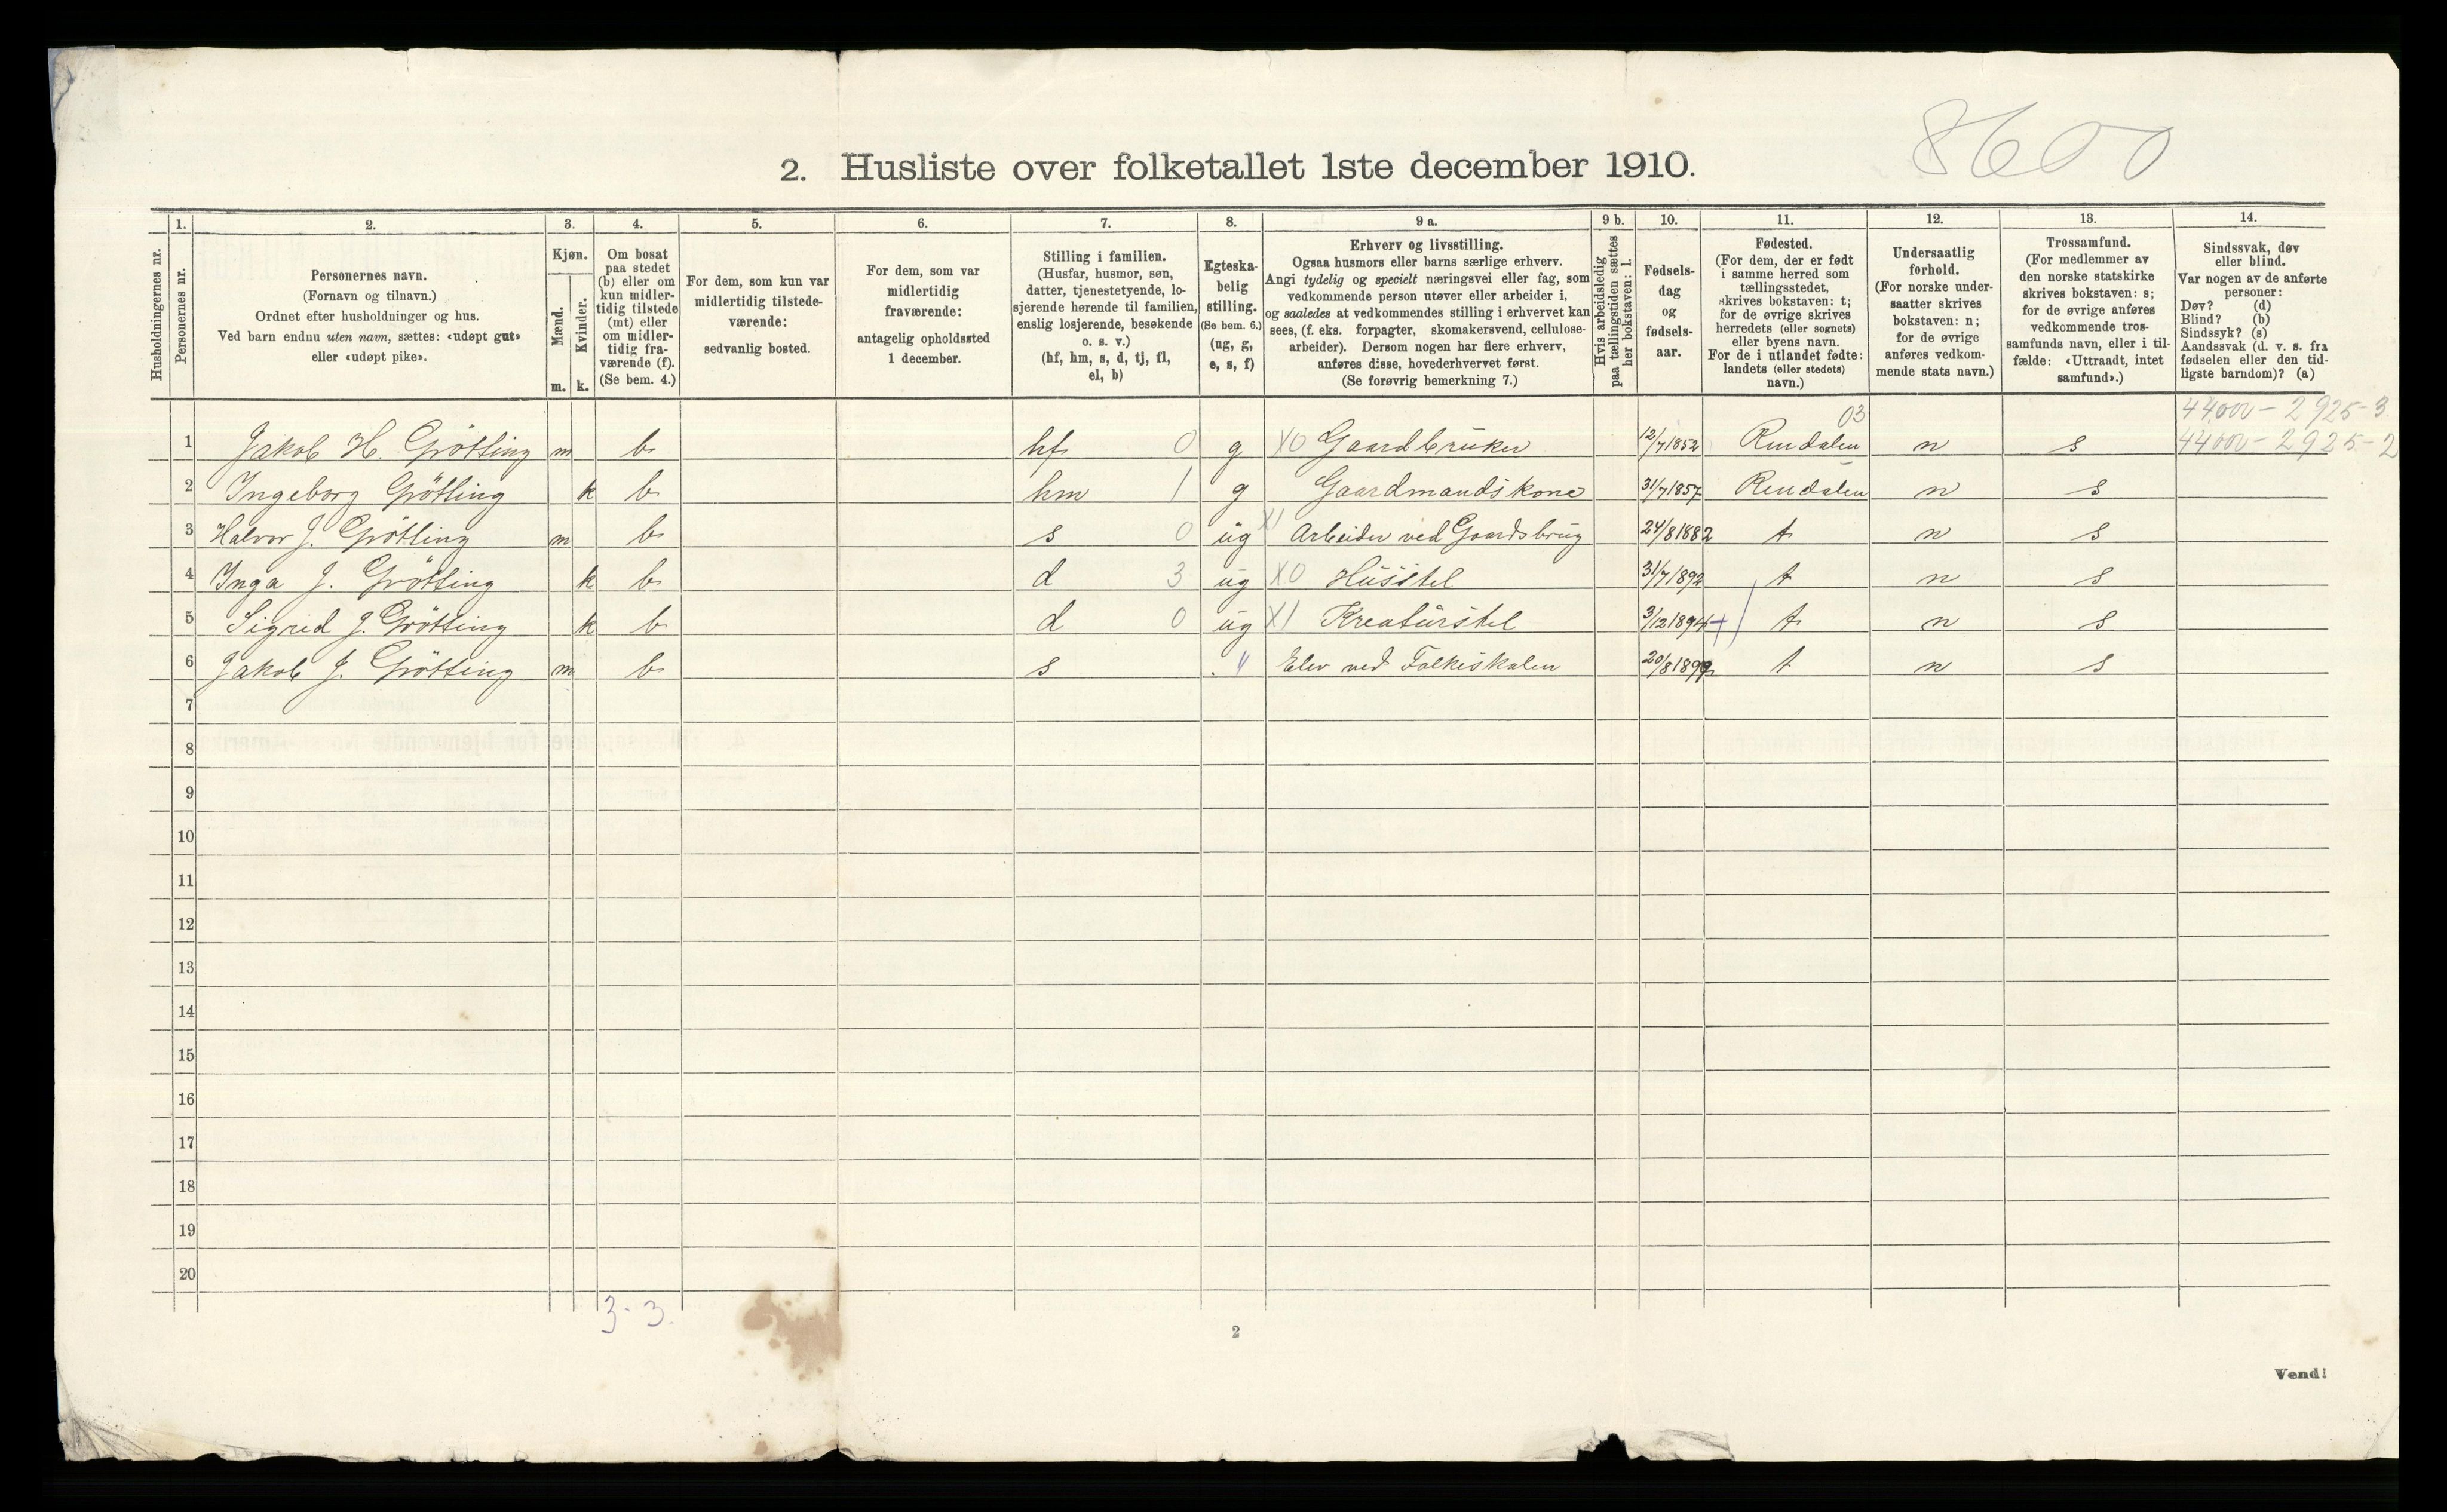 8600
2. Husliste over folketallet 1ste december 1910.
Husholdningernes nr.
1.
Personernes nr.
2.
Personernes navn.
(Fornavn og tilnavn.)
Ordnet efter husholdninger og hus.
Ved barn endnu uten navn, sættes: «udøpt gut»
eller «udøpt pike».
3.
Kjøn.
Mænd.
Kvinder.
m. k.
4.
Om bosat
paa stedet
(b) eller om
kun midler-
tidig tilstede
(mt) eller
om midler-
tidig fra-
værende (f).
(Se bem. 4.)
5.
For dem, som kun var
midlertidig tilstede-
værende:
sedvanlig bosted.
6.
For dem, som var
midlertidig
fraværende:
antagelig opholdssted
1 december.
7.
Stilling i familien.
(Husfar, husmor, søn,
datter, tjenestetyende, lo-
sjerende hørende til familien,
enslig losjerende, besøkende
o. s. v.)
(hf, hm, s, d, tj, fl,
el, b)
8.
Egteska-
belig
stilling.
(Se bem. 6.)
(ug, g,
e, s, f)
9 a.
Erhverv og livsstilling.
Ogsaa husmors eller barns særlige erhverv.
Angi tydelig og specielt næringsvei eller fag, som
vedkommende person utøver eller arbeider i,
og saaledes at vedkommendes stilling i erhvervet kan
sees, (f. eks. forpagter, skomakersvend, cellulose-
arbeider). Dersom nogen har flere erhverv,
anføres disse, hovederhvervet først.
(Se forøvrig bemerkning 7.)
9 b.
Hvis arbeidsledig
paa tællingstiden sættes
her bokstaven: l.
10.
Fødsels-
dag
og
fødsels-
aar.
11.
Fødested.
(For dem, der er født
i samme herred som
tællingsstedet,
skrives bokstaven: t;
for de øvrige skrives
herredets (eller sognets)
eller byens navn.
For de i utlandet fødte:
landets (eller stedets)
navn.)
12.
Undersaatlig
forhold.
(For norske under-
saatter skrives
bokstaven: n;
for de øvrige
anføres vedkom-
mende stats navn.)
13.
Trossamfund.
(For medlemmer av
den norske statskirke
skrives bokstaven: s;
for de øvrige anføres
vedkommende tros-
samfunds navn, eller i til-
fælde: «Uttraadt, intet
samfund».)
14.
Sindssvak, døv
eller blind.
Var nogen av de anførte
personer:
Døv? (d)
Blind? (b)
Sindssyk? (s)
Aandssvak (d. v. s. fra
fødselen eller den tid-
ligste barndom)? (a)
03 44000 - 2925-3
1 Jakob H. Grötting m b hf 0 g X0 Gaardbruker 12/7 1852 Rendalen n s 44000 - 2925-2
2 Ingeborg Grötting k b hm 1 g Gaardmandskone 31/7 1857 Rendalen n s
3 Halvor J. Grötting m b s 0 ug X1 Arbeider ved Gaardsbrug 24/8 1882 t n s
4 Inga J. Grötting k b d 3 ug X0 Husstel 31/7 1892 t n s
5 Sigrid J. Grötting k b d 0 ug X1 Kreaturstel 3/12 1894 t n s
6 Jakob J. Grötting m b s " Elev ved Folkeskolen 20/8 1899 t n s
7
8
9
10
11
12
13
14
15
16
17
18
19
20
3-3
2
Vend!